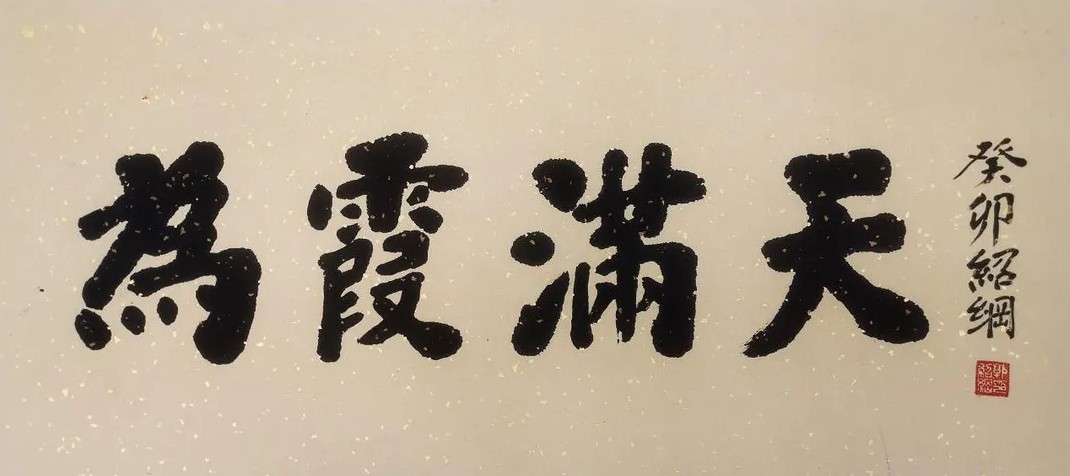 為霞滿天
癸卯紹綱